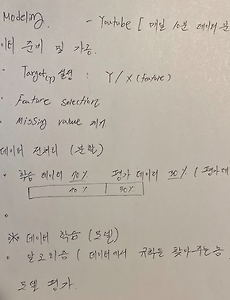 Modeling. - Youtube [ 매일 10분 데이터 분
이터 준비 및 가공.
• Target(y) 설정 : Y / X (feature)
• Feature selection
• Missing value 제거
데이터 전처리 (분할)
• 학습 데이터 70% 평가 데이터 30% ( 평가 데
70% 30%
•
※ 데이터 학습 (모델)
• 알고리즘 ( 데이터에서 규칙을 찾아주는
모델 평가